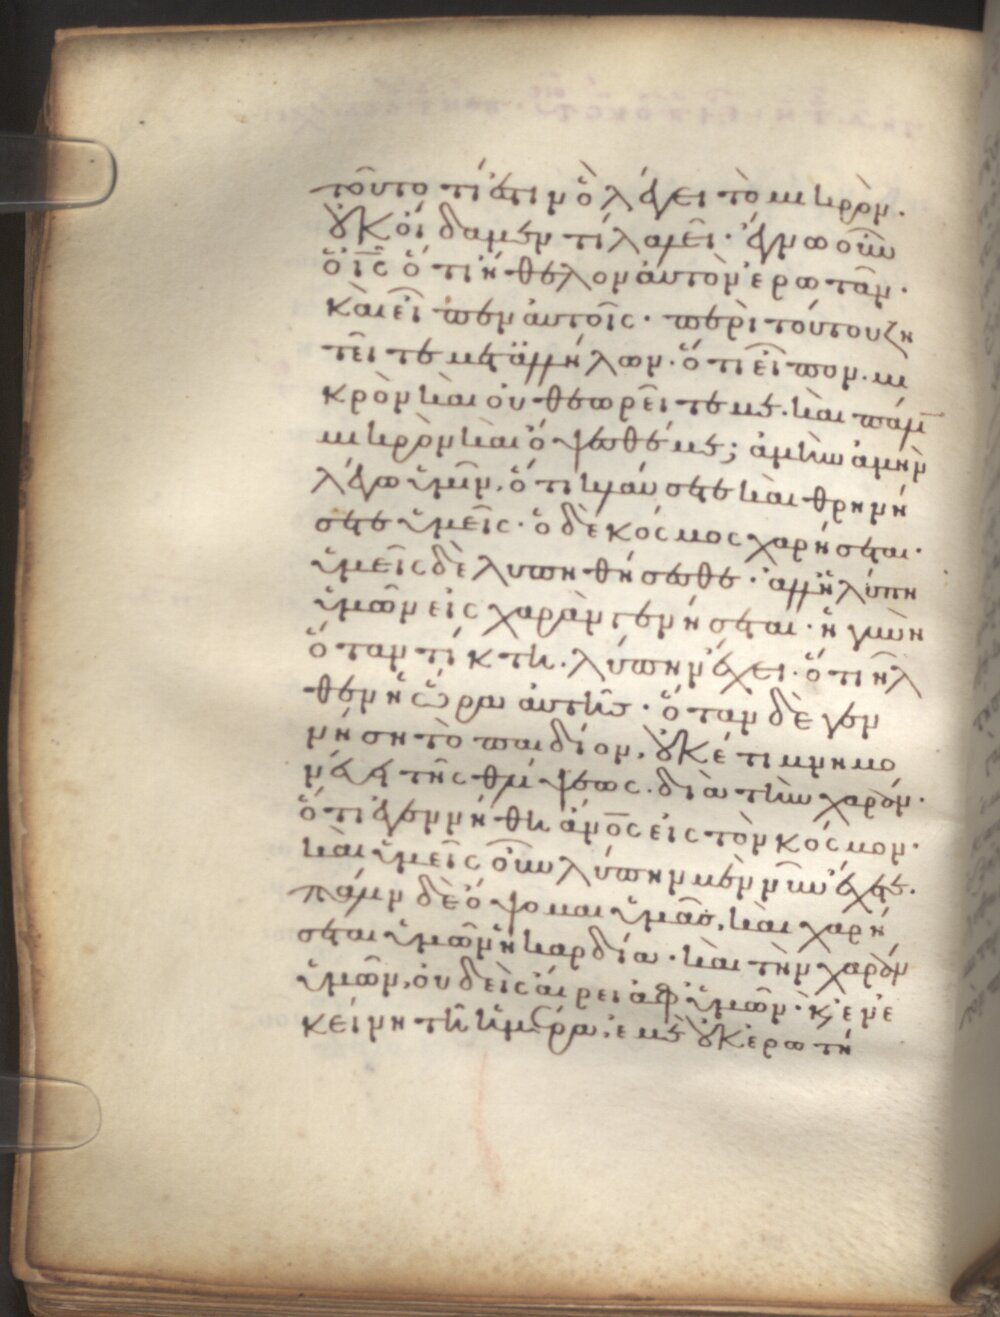 τοῦτο τί ἐστιν ὃ λέγει τὸ μικρὸν.
οὐκ οἴδαμεν τί λαλεῖ· ἔγνω οὖν
ὁ ις ὅτι ἤθελον αὐτὸν ἐρωτᾶν·
καὶ εἶπεν αὐτοῖς· περὶ τούτου ζη
τεῖτε μετ ἀλλήλων· ὅτι εἶπον. μι
κρὸν καὶ οὐ θεωρεῖτε με. καὶ πάλιν
μικρὸν καὶ ὄψεσθέ με; ἀμὴν ἀμὴν
λέγω ὑμῖν, ὅτι κλαύσετε καὶ θρηνή
σετε ὑμεῖς· ὁ δὲ κόσμος χαρήσεται·
ὑμεῖς δὲ λυπηθήσεσθε· ἀλλ ἡ λύπη
ὑμῶν εἰς χαρὰν γενήσεται· ἡ γυνὴ
ὅταν τίκτη. λύπην ἔχει· ὅτι ἦλ
θεν ἡ ὥρα αὐτῆς· ὅταν δὲ γεν
νήση τὸ παιδίον, οὐκέτι μνημο
νεύει τῆς θλίψεως. διὰ τὴν χαρὰν·
ὅτι ἐγεννήθη ἄνος εἰς τὸν κόσμον·
καὶ ὑμεῖς οὖν λύπην μὲν νῦν ἔχετε.
πάλιν δὲ ὄψομαι ὑμᾶς, καὶ χαρή
σεται ὑμῶν ἡ καρδία· καὶ τὴν χαρὰν
ὑμῶν, οὐδεὶς αἴρει ἀφ ὑμῶν· κ ἐν ἐ
κείνη τῆ ἡμέρα, ἐμὲ οὐκ ἐρωτή